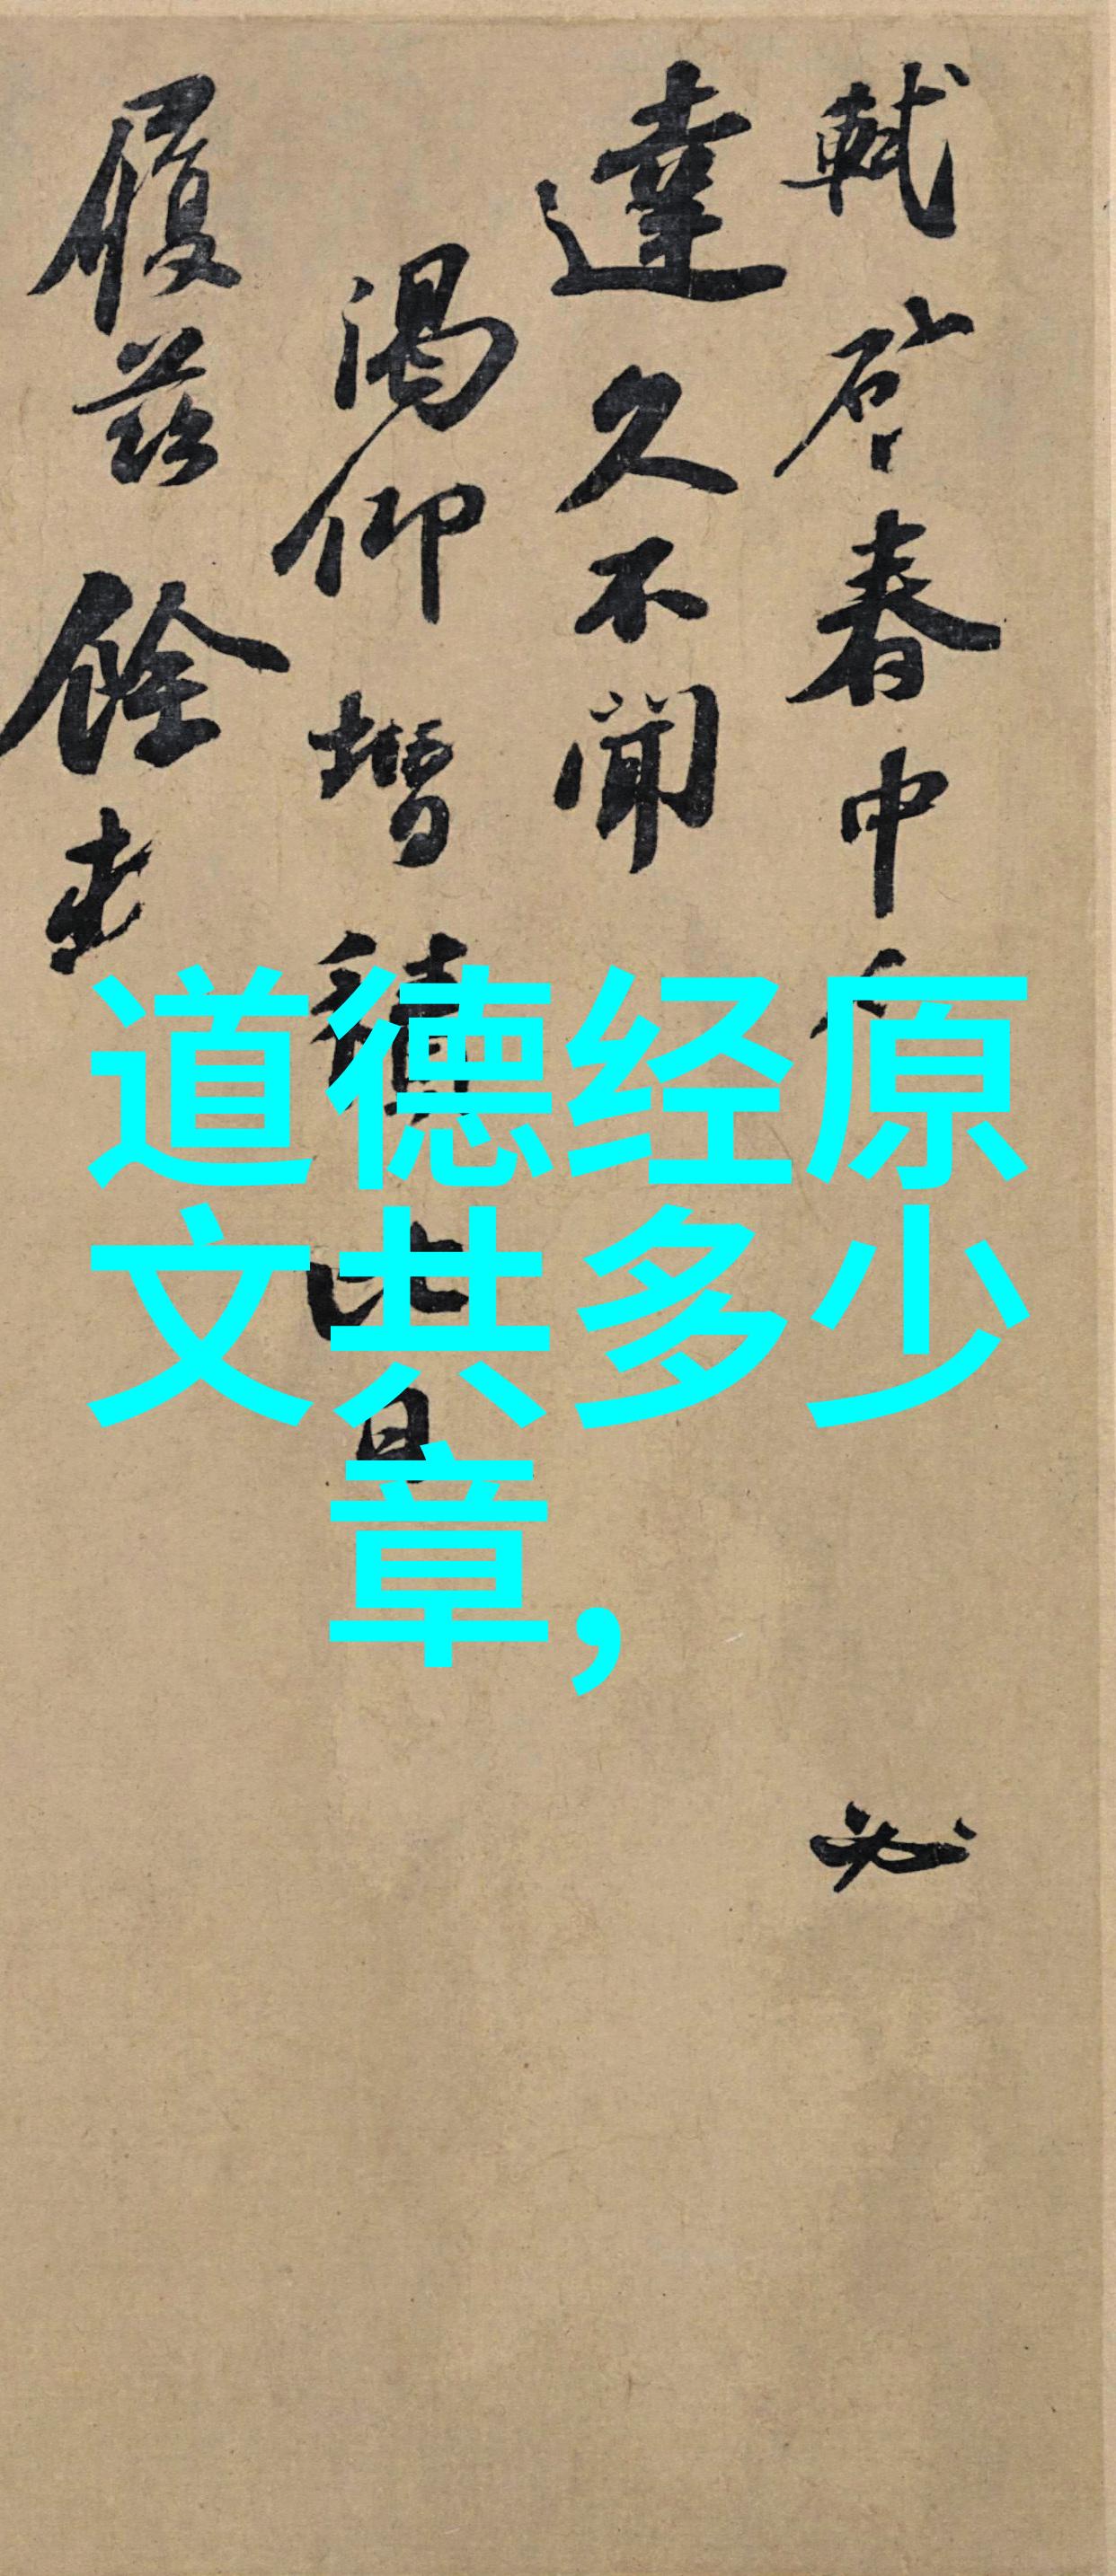 軾啓春中
必
達久不聞
渴仰增積比日
履茲餘
道德经原
文共多少
章,